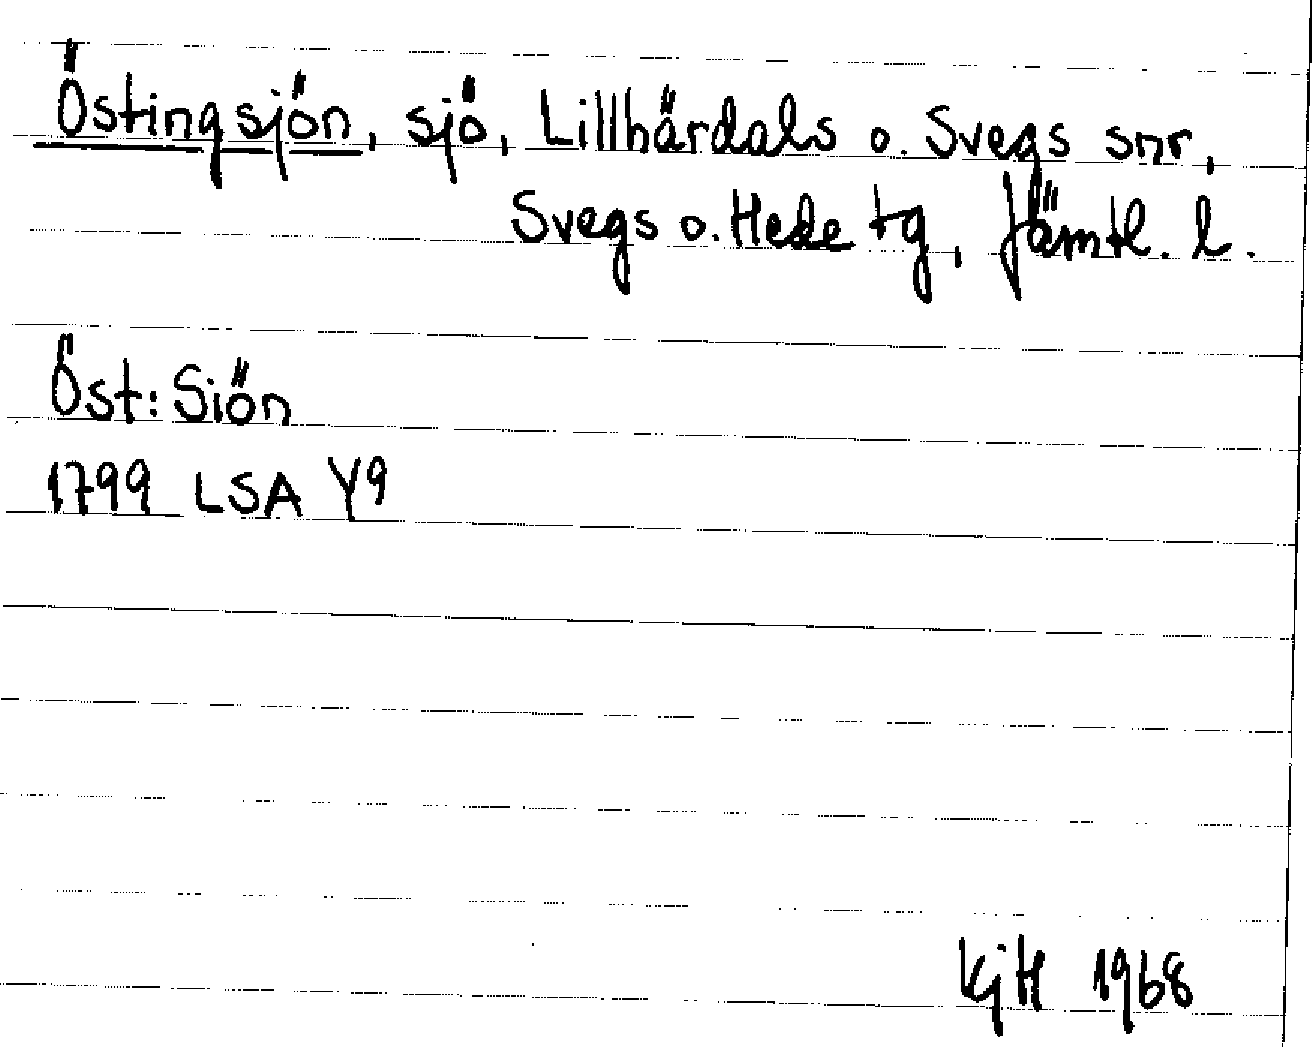 Östingsjön, sjö, Lillhärdals o. Svegs snr,
Svegs o. Hede tg, Jämtl. l.
Öst: Siön
1799 LSA Y9
KjH 1968